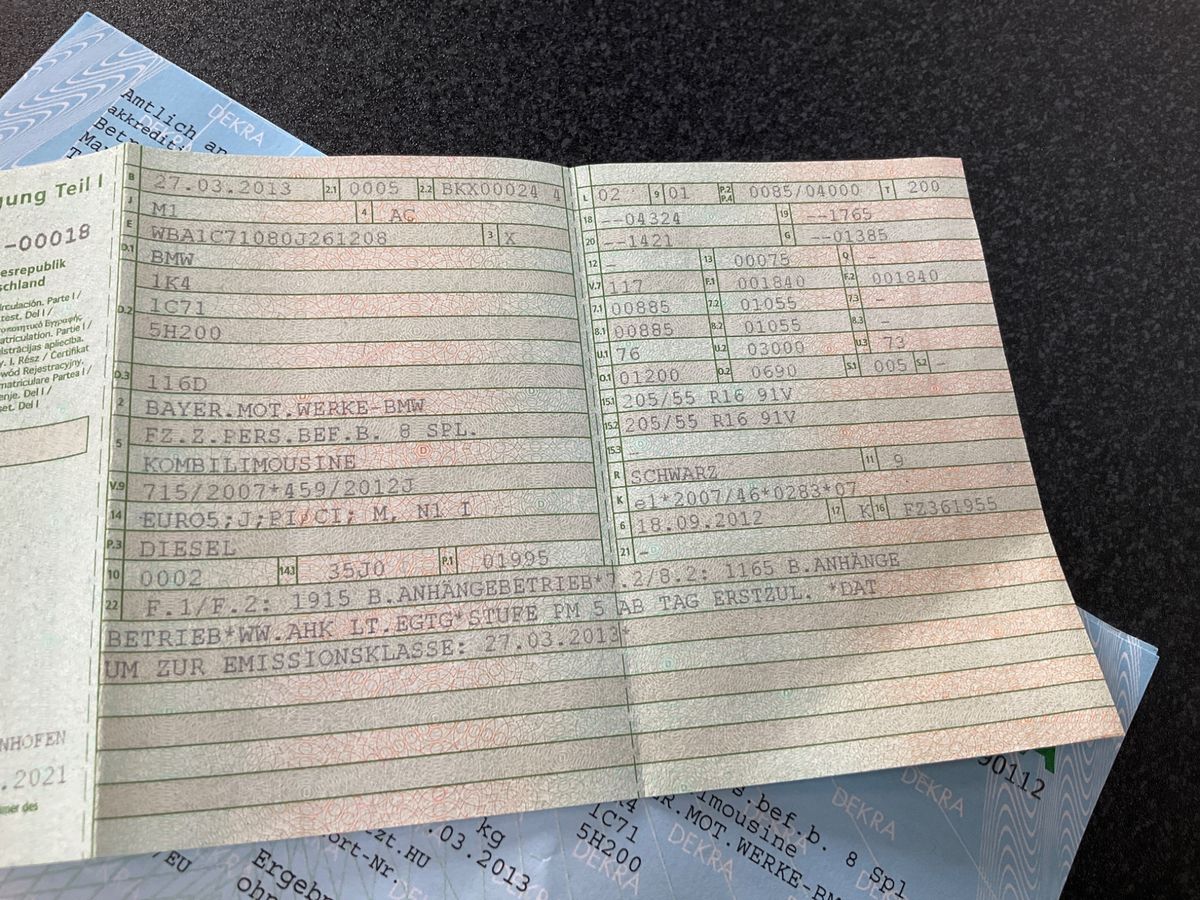 Amtlich an
akkrediti
Betr
Ma
DEKRA
gung Teil I
-00018
esrepublik
schland
Parte I /
Del I /
Partie I /
apliecība.
Rész / Certifikat
Rejestracyjny.
Partea I /
Del I /
Del I
NHOFEN
.2021
B 27.03.2013 2.1 0005 2.2 BKX00024 4
J M1 4 AC
E WBA1C71080J261208 3 X
D.1 BMW
1K4
D.2 1C71
5H200
D.3 116D
2 BAYER.MOT.WERKE-BMW
5 FZ.Z.PERS.BEF.B. 8 SPL.
KOMBILIMOUSINE
V.9 715/2007*459/2012J
14 EURO5;J;PI/CI; M, N1 I
P.3 DIESEL
10 0002 14.1 35J0 P.1 01995
L 02 9 01 P.2 P.4 0085/04000 T 200
18 --04324 19 --1765
20 --1421 G --01385
12 - 13 00075 Q -
V.7 117 F.1 001840 F.2 001840
7.1 00885 7.2 01055 7.3 -
8.1 00885 8.2 01055 8.3 -
U.1 76 U.2 03000 U.3 73
O.1 01200 O.2 0690 S.1 005 S.2 -
15.1 205/55 R16 91V
15.2 205/55 R16 91V
15.3 -
R SCHWARZ 11 9
K e1*2007/46*0283*07
6 18.09.2012 17 K 16 FZ361955
21 -
22 F.1/F.2: 1915 B.ANHÄNGEBETRIEB*7.2/8.2: 1165 B.ANHÄNGE
BETRIEB*WW.AHK LT.EGTG*STUFE PM 5 AB TAG ERSTZUL. *DAT
UM ZUR EMISSIONSKLASSE: 27.03.2013*
90112
s.bef.b. 8 Spl
imousine
R.MOT.WERKE-BM
1C71
5H200
kg
.03.2013
zt.HU
ort-Nr.
EU
Ergebn
ohn
DEKRA
DEKRA
DEKRA
DEKRA